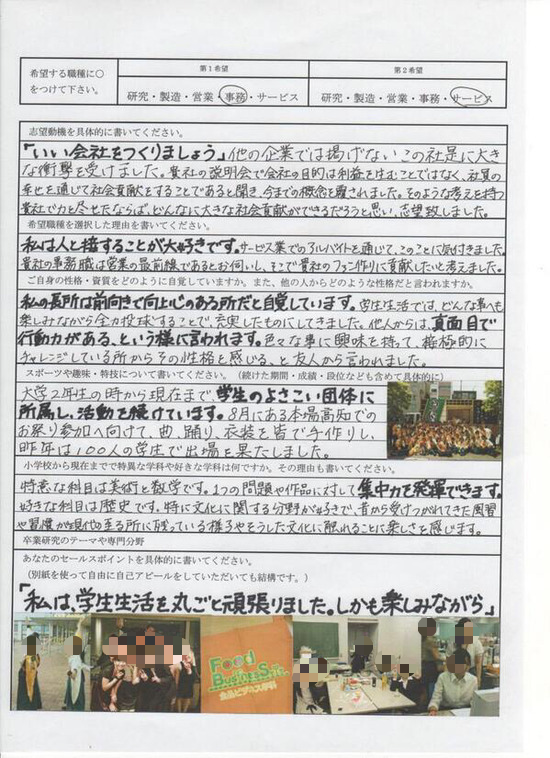 希望する職種に○
をつけて下さい。
第１希望
第２希望
研究・製造・営業・事務・サービス
研究・製造・営業・事務・サービス
志望動機を具体的に書いてください。
「いい会社をつくりましょう」他の企業では掲げないこの社是に大き
な衝撃を受けました。貴社の説明会で会社の目的は利益を生むことではなく、社員の
幸せを通じて社会貢献をすることであると聞き、今までの概念を覆されました。そのような考えを持つ
貴社で力を尽せたならば、どんなに大きな社会貢献ができるだろうと思い、志望致しました。
希望職種を選択した理由を書いてください。
私は人と接することが大好きです。サービス業でのアルバイトを通じて、このことに気付きました。
貴社の事務職は営業の最前線であるとお伺いし、そこで貴社のファン作りに貢献したいと考えました。
ご自身の性格・資質をどのように自覚していますか。また、他の人からどのような性格だと言われますか。
私の長所は前向きで向上心のある所だと自覚しています。学生生活では、どんな事へも
楽しみながら全力投球することで、充実したものにしてきました。他人からは、真面目で
行動力がある、という様に言われます。色々な事に興味を持って、積極的に
チャレンジしている所からその性格を感じる、と友人から言われました。
スポーツや趣味・特技について書いてください。（続けた期間・成績・段位なども含めて具体的に）
大学2年生の時から現在まで、学生のよさこい団体に
所属し、活動を続けています。8月にある本場高知での
お祭り参加へ向けて、曲、踊り、衣装を皆で手作りし、
昨年は100人の学生で出場を果たしました。
小学校から現在までで得意な学科や好きな学科は何ですか。その理由も書いてください。
得意な科目は美術と数学です。1つの問題や作品に対して集中力を発揮できます。
好きな科目は歴史です。特に文化に関する分野が好きで、昔から受けつがれてきた風習
や習慣が現代の至る所に残っている様子やそうした文化に触れることに楽しさを感じます。
卒業研究のテーマや専門分野
あなたのセールスポイントを具体的に書いてください。
（別紙を使って自由に自己アピールをしていただいても結構です。）
「私は、学生生活を丸ごと頑張りました。しかも楽しみながら」
Food
Business
食品ビジネス学科